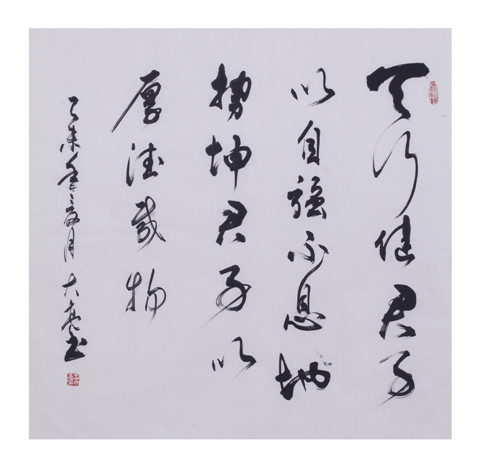 天行健君子
以自强不息地
势坤君子以
厚德载物
乙未年月大亮书